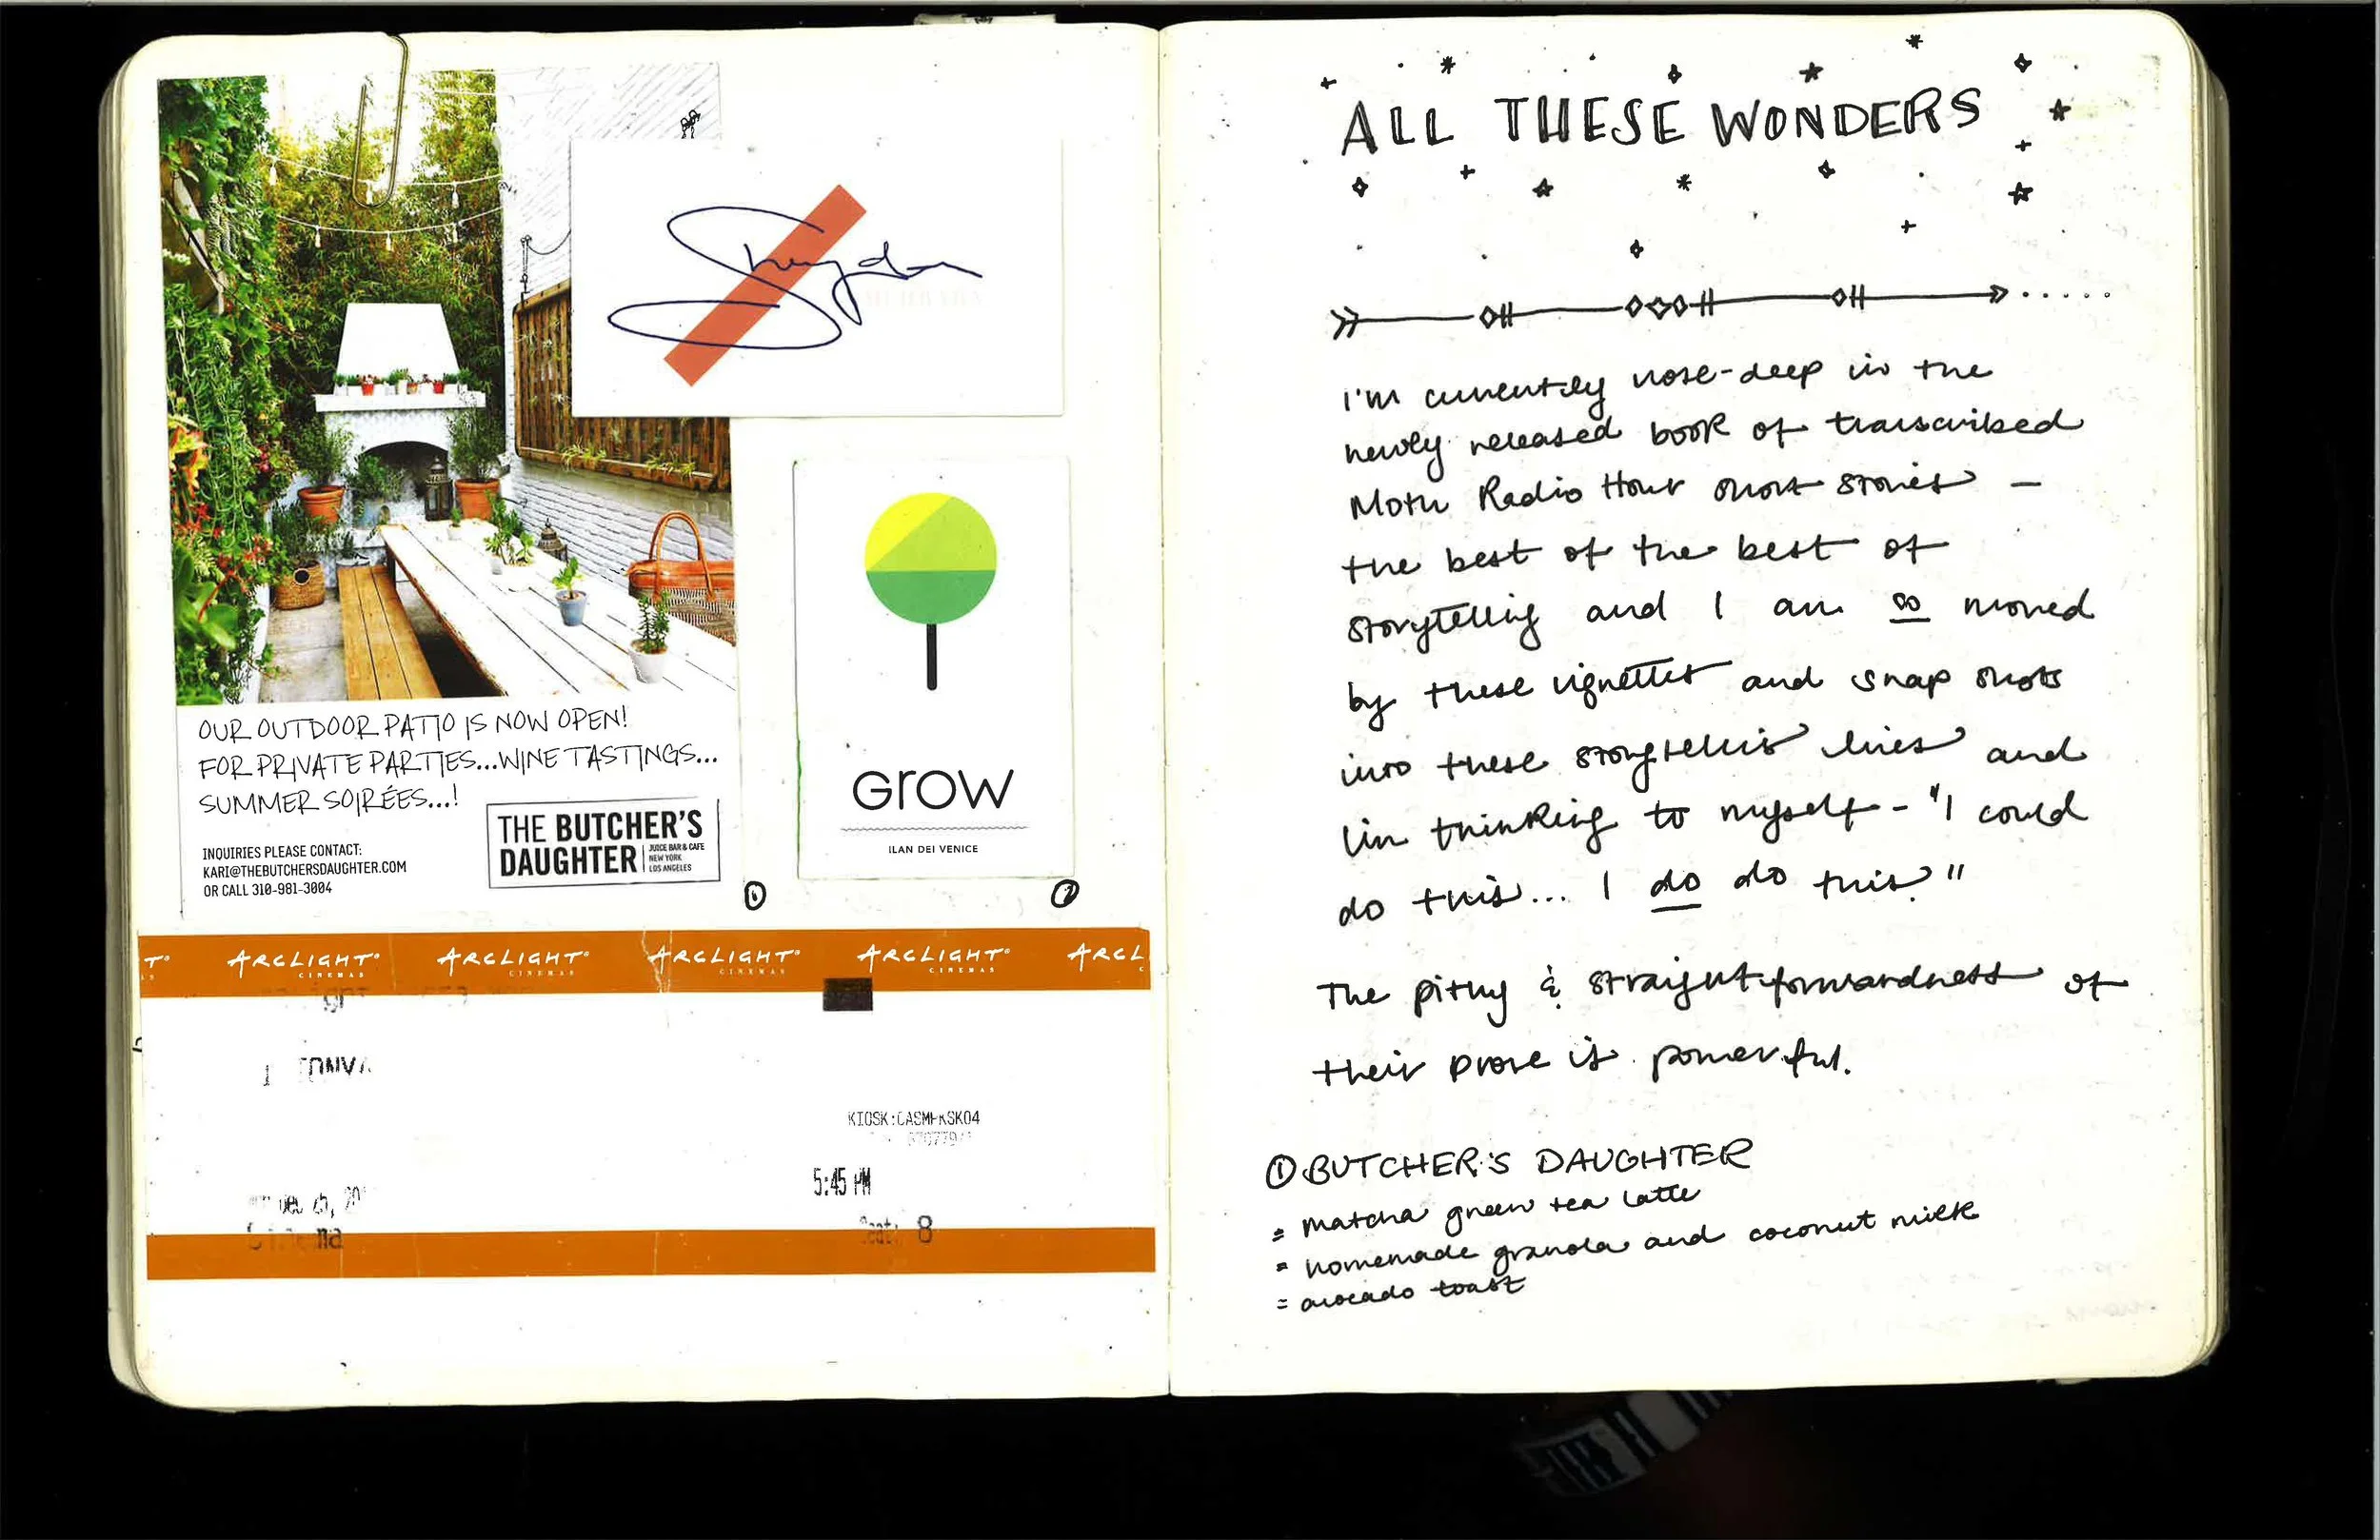 Sheydon
OUR OUTDOOR PATIO IS NOW OPEN!
FOR PRIVATE PARTIES...WINE TASTINGS...
SUMMER SOIRÉES...!
INQUIRIES PLEASE CONTACT:
KARI@THEBUTCHERSDAUGHTER.COM
OR CALL 310-981-3004
THE BUTCHER'S
DAUGHTER
JUICE BAR & CAFE
NEW YORK
LOS ANGELES
grow
ILAN DEI VENICE
1
2
ARCLIGHT ARCLIGHT ARCLIGHT ARCLIGHT ARCL
CINEMAS CINEMAS CINEMAS CINEMAS
5:45 PM
8
ALL THESE WONDERS
I'm currently nose-deep in the
newly released book of transcribed
Moth Radio Hour short stories –
the best of the best of
storytelling and I am so moved
by these vignettes and snap shots
into these storytellers lives and
I'm thinking to myself – "I could
do this... I do do this."
The pithy & straightforwardness of
their prose is powerful.
① BUTCHER'S DAUGHTER
= matcha green tea latte
= homemade granola and coconut milk
= avocado toast